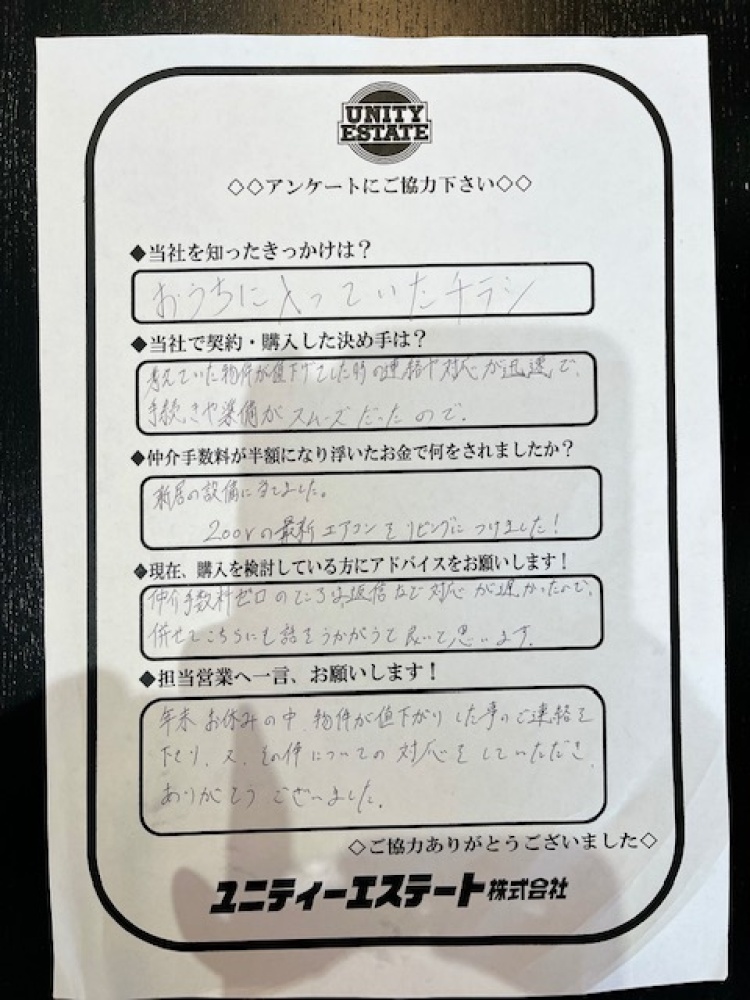 UNITY
ESTATE
◇◇アンケートにご協力下さい◇◇
◆当社を知ったきっかけは?
おうちに入っていたチラシ
◆当社で契約・購入した決め手は?
考えていた物件が値下げした時の連絡や対応が迅速で、
手続きや準備がスムーズだったので。
◆仲介手数料が半額になり浮いたお金で何をされましたか?
新居の設備に当てました。
200vの最新エアコンをリビングにつけました!
◆現在、購入を検討している方にアドバイスをお願いします!
仲介手数料ゼロのところは返信など対応が遅かったので、
併せてこちらにも話をうかがうと良いと思います。
◆担当営業へ一言、お願いします!
年末お休みの中、物件が値下がりした事のご連絡を
下さり、又、その件についての対応をしていただき、
ありがとうございました。
◇ご協力ありがとうございました◇
ユニティーエステート株式会社